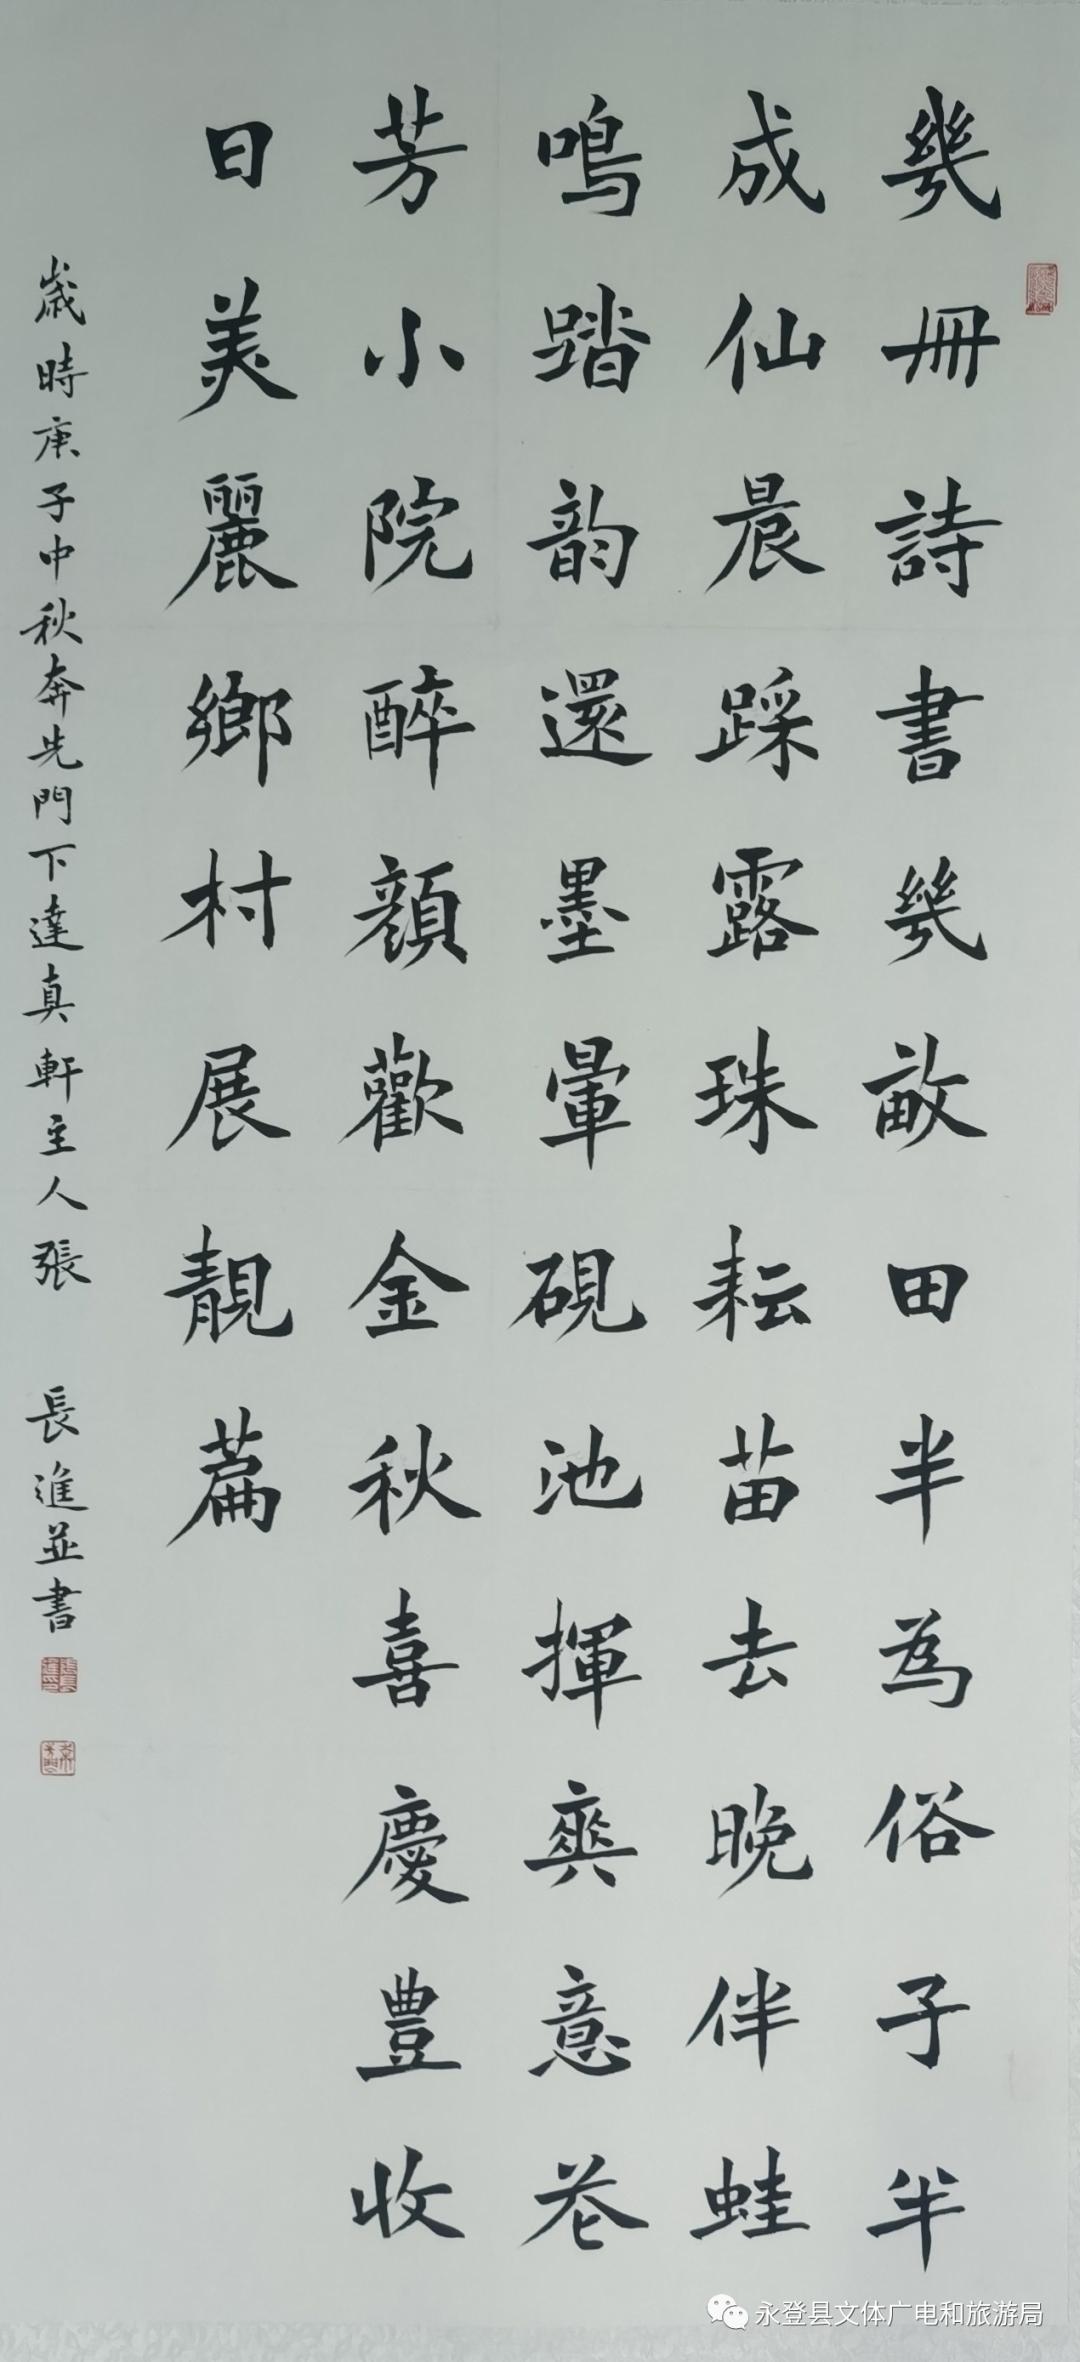 幾冊詩書幾畝田半為俗子半
成仙晨踩露珠耘苗去晚伴蛙
鳴踏韵還墨暈硯池揮爽意花
芳小院醉顏歡金秋喜慶豐收
日美麗鄉村展靚篇
歲時庚子中秋奔先門下達真軒主人張長進並書
永登县文体广电和旅游局